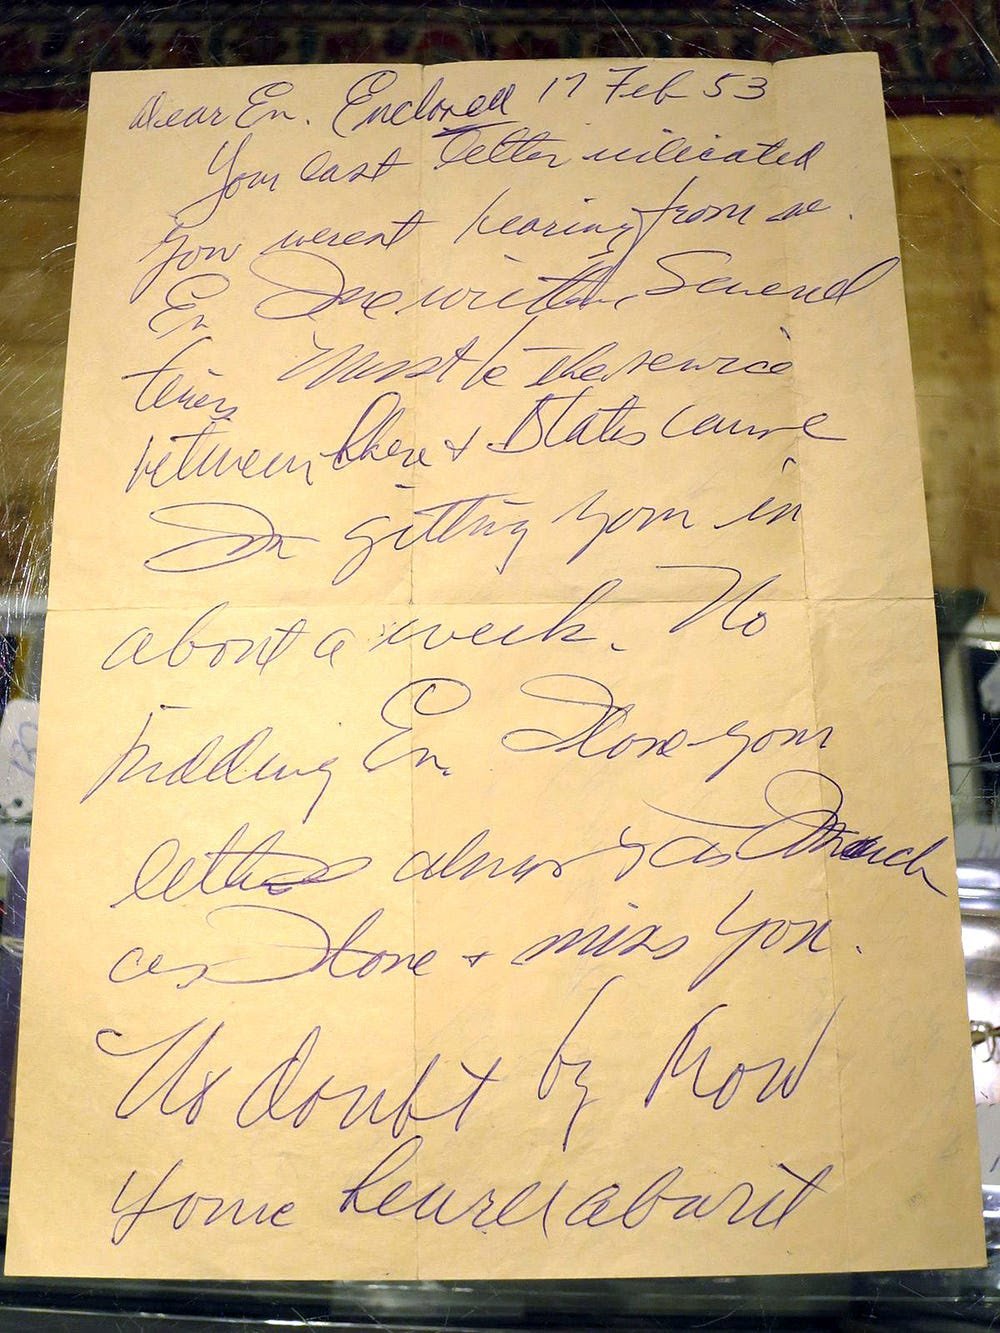 Dear En. Enclosed 17 Feb 53
Your last letter indicated
you werent hearing from me.
En Ive written Several
times Must be the service
between here + States cause
Im getting yours in
about a week. No
kidding En. I love your
letters always as much
as I love + miss you.
No doubt by now
youve heard about